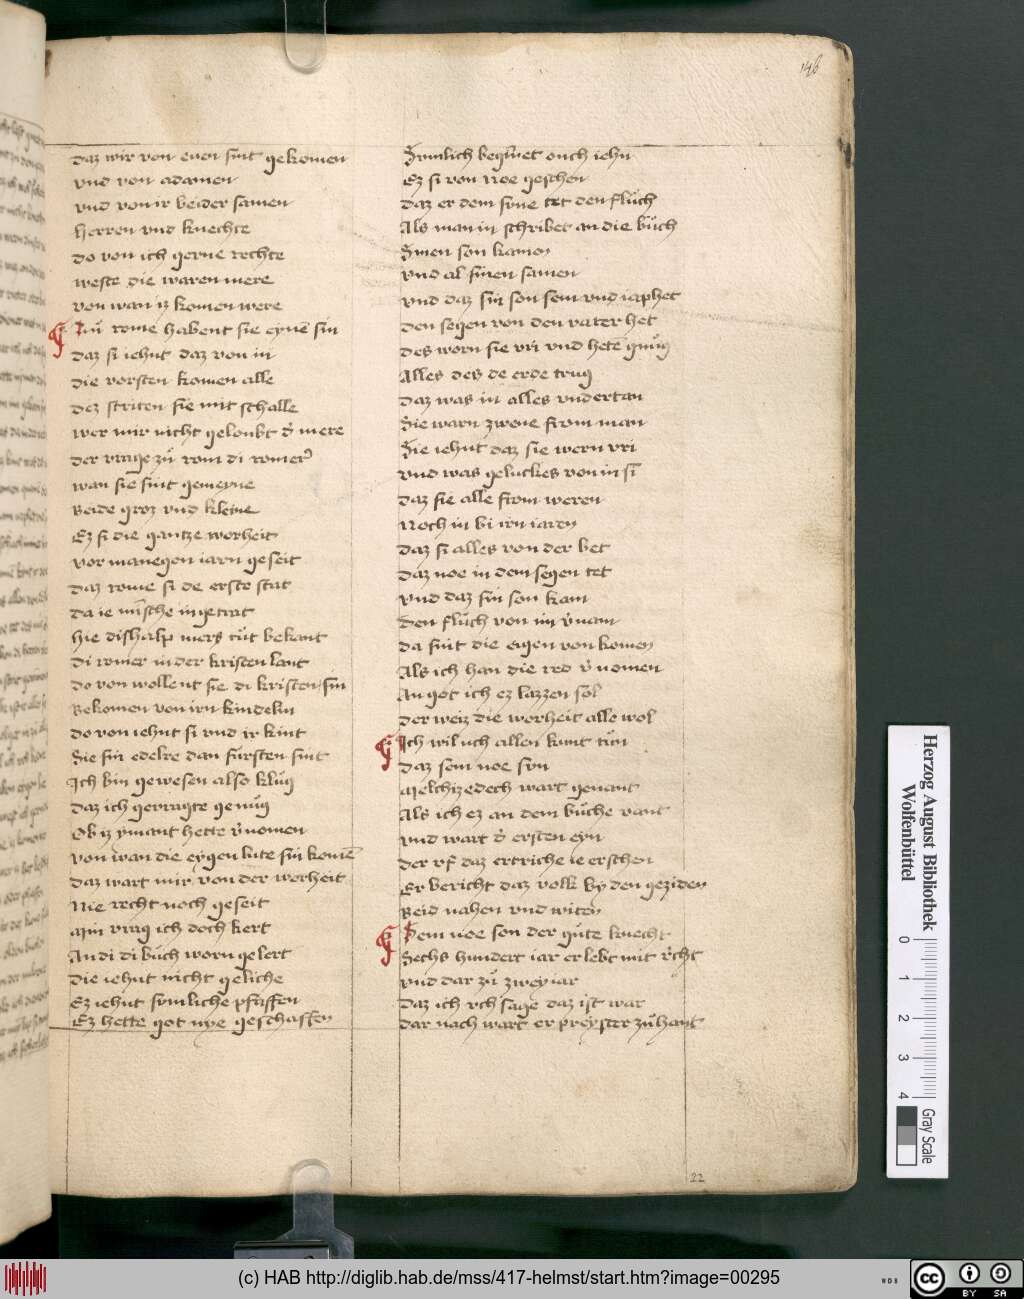 146
daz wir von euen sint gekomen
vnd von adamen
vnd von ir beider samen
herren vnd knechte
do von ich gerne rechte
weste die waren mere
von wan iz komen were
Nů rome habent sie eynē sin
daz si iehnt daz von in
die vorsten komen alle
dez striten sie mit schalle
wer mir nicht geloubt d' mere
der vrage zů rom di romer'
wan sie sint gemeyne
Beide groz vnd kleine
Ez si die gantze worheit
vor manegen iarn geseit
daz rome si de erste stat
da ie mīsche in getrat
hie dishalp mers tůt bekant
di romer in der kristen lant
do von wollent sie di kristen sin
Bekomen von irn kindelin
do von iehnt si vnd ir kint
Sie sin edelre dan fůrsten sint
Ich bin gewesen also klůg
daz ich gevragte genůg
Ob iz ymant hette v'nomen
von wan die eygen lute sin komē
daz wart mir von der worheit
Nie recht noch geseit
Min vrag ich doch kert
An di di bůch worn gelert
die iehnt nicht geliche
Ez iehnt sȳmliche pfaffen
Ez hette got nye geschaffen
Sȳmlich begīnet ouch iehn
Ez si von Noe geschen
daz er dem sȳne tet den flůch
Als man in schribet an die bůch
Sinen son kamen
vnd al sinen samen
vnd daz sin son sem vnd iaphet
den segen von den vater het
des worn sie vri vnd hetē gnůg
Alles des de erde trug
daz was in alles vndertan
Sie warn zwene from man
Sie iehnt daz sie wern vri
vnd was geluckes von in si
daz sie alle from weren
Noch in bi irn iaren
daz si alles von der bet
daz noe in dem segen tet
vnd daz sin son kam
den flůch von im v'nam
da sint die eigen von komen
Als ich han die red v'nomen
An got ich ez lazzen sol
der weiz die worheit alle wol
Ich wil uch allen kunt tůn
daz sem noe sȳn
Melchizedech wart genant
Als ich ez an dem bůche vant
vnd wart d' ersten eyn
der vf daz ertriche ie erschen
Er bericht daz volk by den geziden
Beid nahen vnd witen
Sem noe son der gůte knecht
Sechs hundert iar er lebt mit r'cht
vnd dar zů zwey iar
daz ich vch sage daz ist war
dar nach wart er preyster zůhant
22
Herzog August Bibliothek
Wolfenbüttel
0 1 2 3 4
Gray Scale
(c) HAB http://diglib.hab.de/mss/417-helmst/start.htm?image=00295
WDB
cc
BY SA